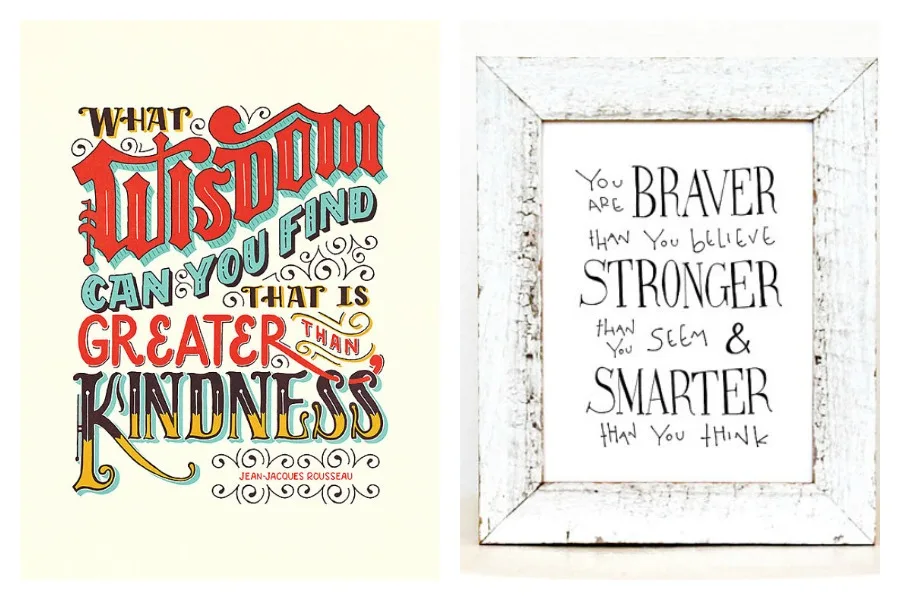 WHAT
WISDOM
CAN YOU FIND
THAT IS
GREATER THAN
KINDNESS
JEAN-JACQUES ROUSSEAU
YOU ARE BRAVER
THAN YOU BELIEVE
STRONGER
THAN YOU SEEM &
SMARTER
THAN YOU THINK